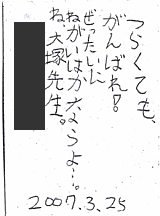 つらくても、
がんばれ!
ぜったいに
ねがいはかなうよ…。
ね、大塚先生。
2007.3.25